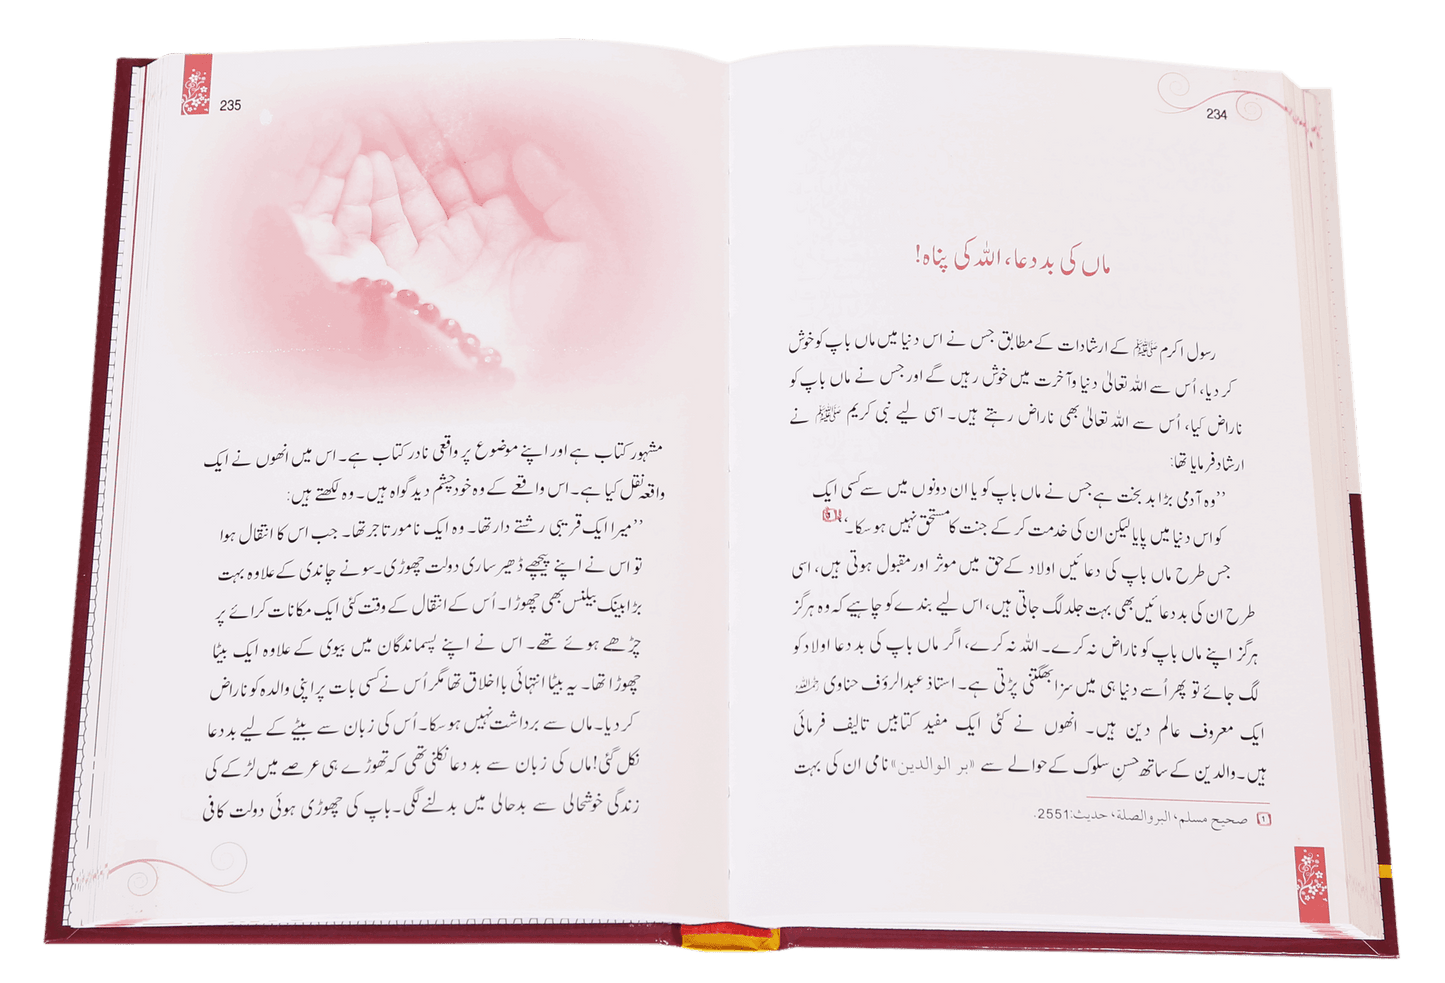 234
ماں کی بد دعا، اللہ کی پناہ!
رسول اکرم ﷺ کے ارشادات کے مطابق جس نے اس دنیا میں ماں باپ کو خوش
کر دیا، اُس سے اللہ تعالیٰ دنیا و آخرت میں خوش رہیں گے اور جس نے ماں باپ کو
ناراض کیا، اُس سے اللہ تعالیٰ بھی ناراض رہتے ہیں۔ اسی لیے نبی کریم ﷺ نے
ارشاد فرمایا تھا:
’’وہ آدمی بڑا بد بخت ہے جس نے ماں باپ کو یا ان دونوں میں سے کسی ایک
کو اس دنیا میں پایا لیکن ان کی خدمت کر کے جنت کا مستحق نہیں ہو سکا۔‘‘
جس طرح ماں باپ کی دعائیں اولاد کے حق میں موثر اور مقبول ہوتی ہیں، اسی
طرح ان کی بد دعائیں بھی بہت جلد لگ جاتی ہیں، اس لیے بندے کو چاہیے کہ وہ ہرگز
ہرگز اپنے ماں باپ کو ناراض نہ کرے۔ اللہ نہ کرے، اگر ماں باپ کی بد دعا اولاد کو
لگ جائے تو پھر اُسے دنیا ہی میں سزا بھگتنی پڑتی ہے۔ استاذ عبدالرؤف حناوی رحمہ اللہ
ایک معروف عالم دین ہیں۔ انھوں نے کئی ایک مفید کتابیں تالیف فرمائی
ہیں۔ والدین کے ساتھ حسنِ سلوک کے حوالے سے «بر الوالدین» نامی ان کی بہت
1 صحیح مسلم، البر والصلة، حدیث:2551.
235
مشہور کتاب ہے اور اپنے موضوع پر واقعی نادر کتاب ہے۔ اس میں انھوں نے ایک
واقعہ نقل کیا ہے۔ اس واقعے کے وہ خود چشم دید گواہ ہیں۔ وہ لکھتے ہیں:
’’میرا ایک قریبی رشتے دار تھا۔ وہ ایک نامور تاجر تھا۔ جب اس کا انتقال ہوا
تو اس نے اپنے پیچھے ڈھیر ساری دولت چھوڑی۔ سونے چاندی کے علاوہ بہت
بڑا بینک بیلنس بھی چھوڑا۔ اُس کے انتقال کے وقت کئی ایک مکانات کرائے پر
چڑھے ہوئے تھے۔ اس نے اپنے پسماندگان میں بیوی کے علاوہ ایک بیٹا
چھوڑا تھا۔ یہ بیٹا انتہائی بااخلاق تھا مگر اُس نے کسی بات پر اپنی والدہ کو ناراض
کر دیا۔ ماں سے برداشت نہیں ہو سکا۔ اُس کی زبان سے بیٹے کے لیے بد دعا
نکل گئی! ماں کی زبان سے بد دعا نکلنی تھی کہ تھوڑے ہی عرصے میں لڑکے کی
زندگی خوشحالی سے بدحالی میں بدلنے لگی۔ باپ کی چھوڑی ہوئی دولت کافی